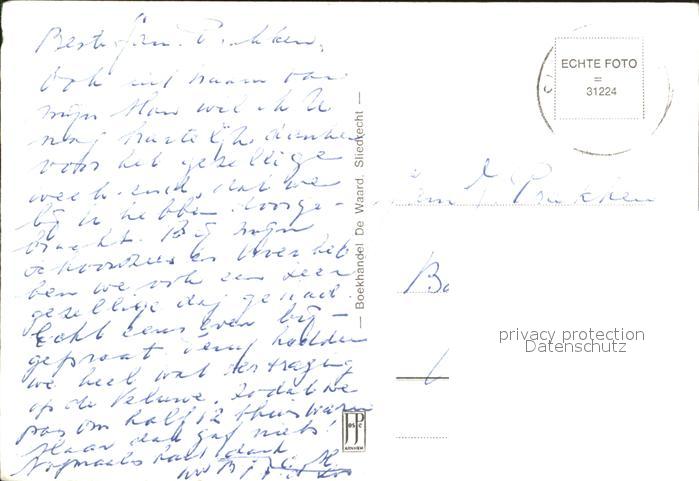 Beste Fam.
Ook uit naam van
mijn Man wil ik U
nog hartelijk danken
voor het gezellige
weekend, dat we
bij U hebben doorge-
bracht. Bij mijn
schoonzus en
ben we ook een zeer
gezellige dag gehad.
Echt eens even bij-
gepraat. Terug hadden
we heel wat vertraging
op de Veluwe. Zodat we
pas om half 12 thuis waren
Maar dat gaf niets!
Nogmaals hart. dank
— Boekhandel De Waard, Sliedrecht —
JosPé
ARNHEM
ECHTE FOTO
=
31224
Fam
privacy protection
Datenschutz